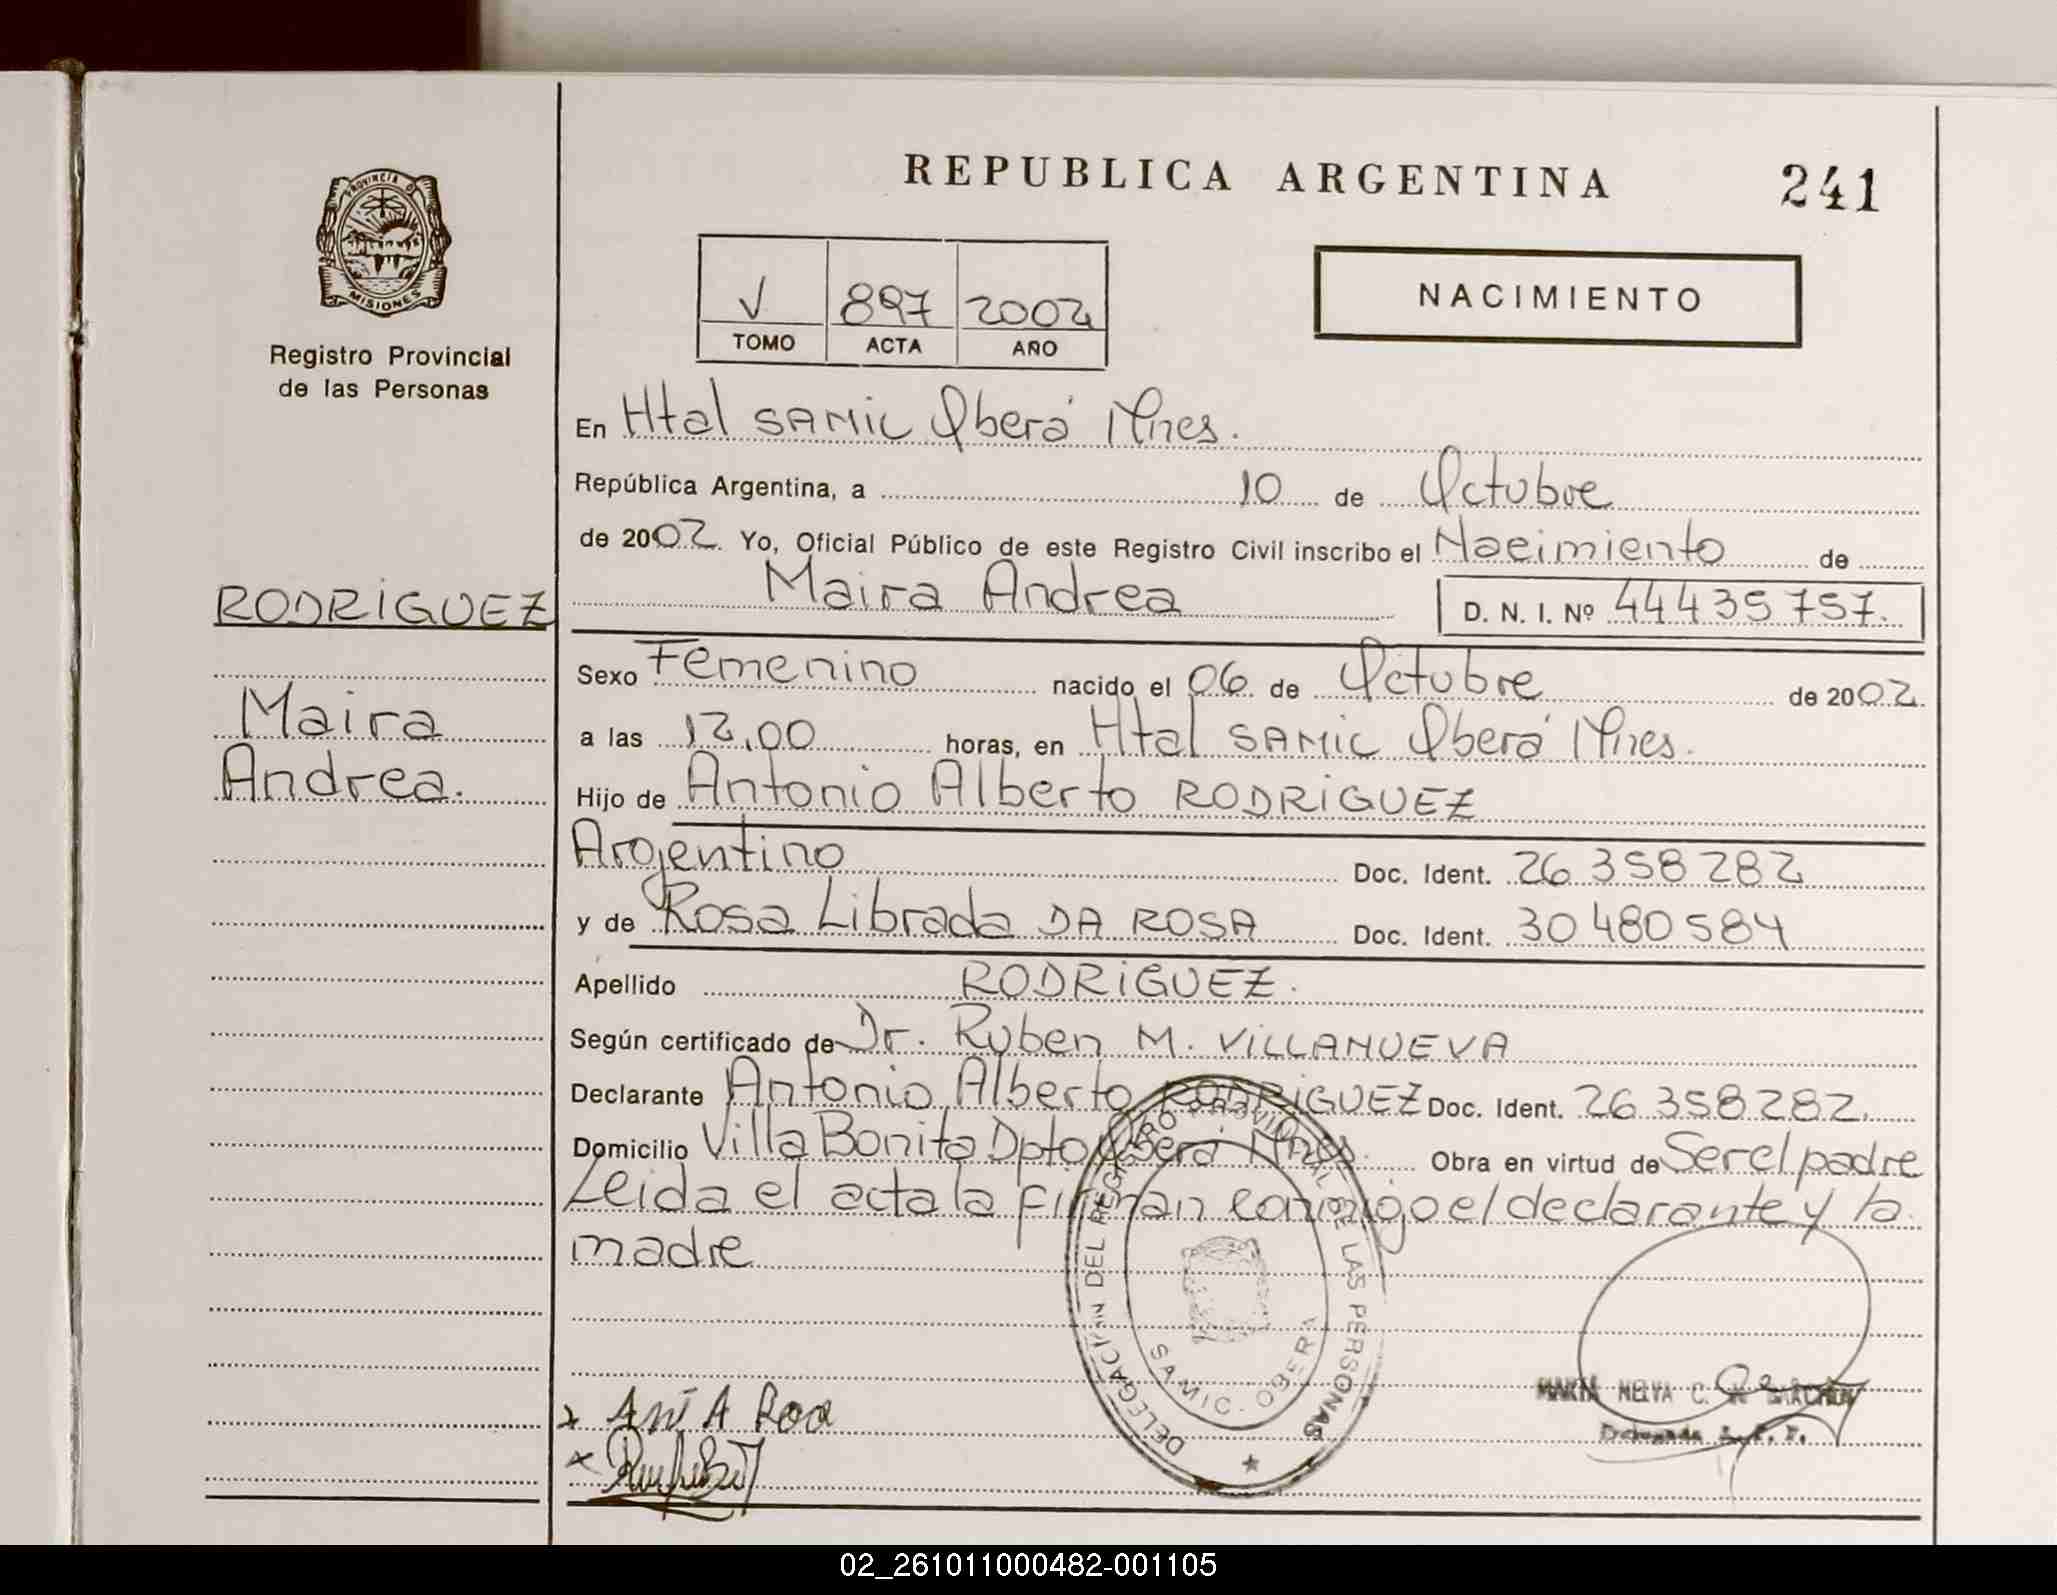 REPUBLICA ARGENTINA
241
PROVINCIA DE
MISIONES
Registro Provincial
de las Personas
V 897 2002
TOMO ACTA AÑO
NACIMIENTO
En Htal SAMIC Oberá Mnes.
República Argentina, a 10 de Octubre
de 2002. Yo, Oficial Público de este Registro Civil inscribo el Nacimiento de
Maira Andrea D. N. I. Nº 44435757.
RODRIGUEZ
Maira
Andrea.
Sexo Femenino nacido el 06 de Octubre de 2002
a las 12,00 horas, en Htal SAMIC Oberá Mnes.
Hijo de Antonio Alberto RODRIGUEZ
Argentino Doc. Ident. 26 358 282
y de Rosa Librada DA ROSA Doc. Ident. 30 480 584
Apellido RODRIGUEZ.
Según certificado de Dr. Ruben M. VILLANUEVA
Declarante Antonio Alberto RODRIGUEZ Doc. Ident. 26 358 282.
Domicilio Villa Bonita Dpto Oberá Mnes. Obra en virtud de Ser el padre
Leida el acta la firman conmigo el declarante y la
madre
DELEGACION DEL REGISTRO PROVINCIAL DE LAS PERSONAS
SAMIC. OBERA
MARIA NELVA C.
Delegada
02_261011000482-001105